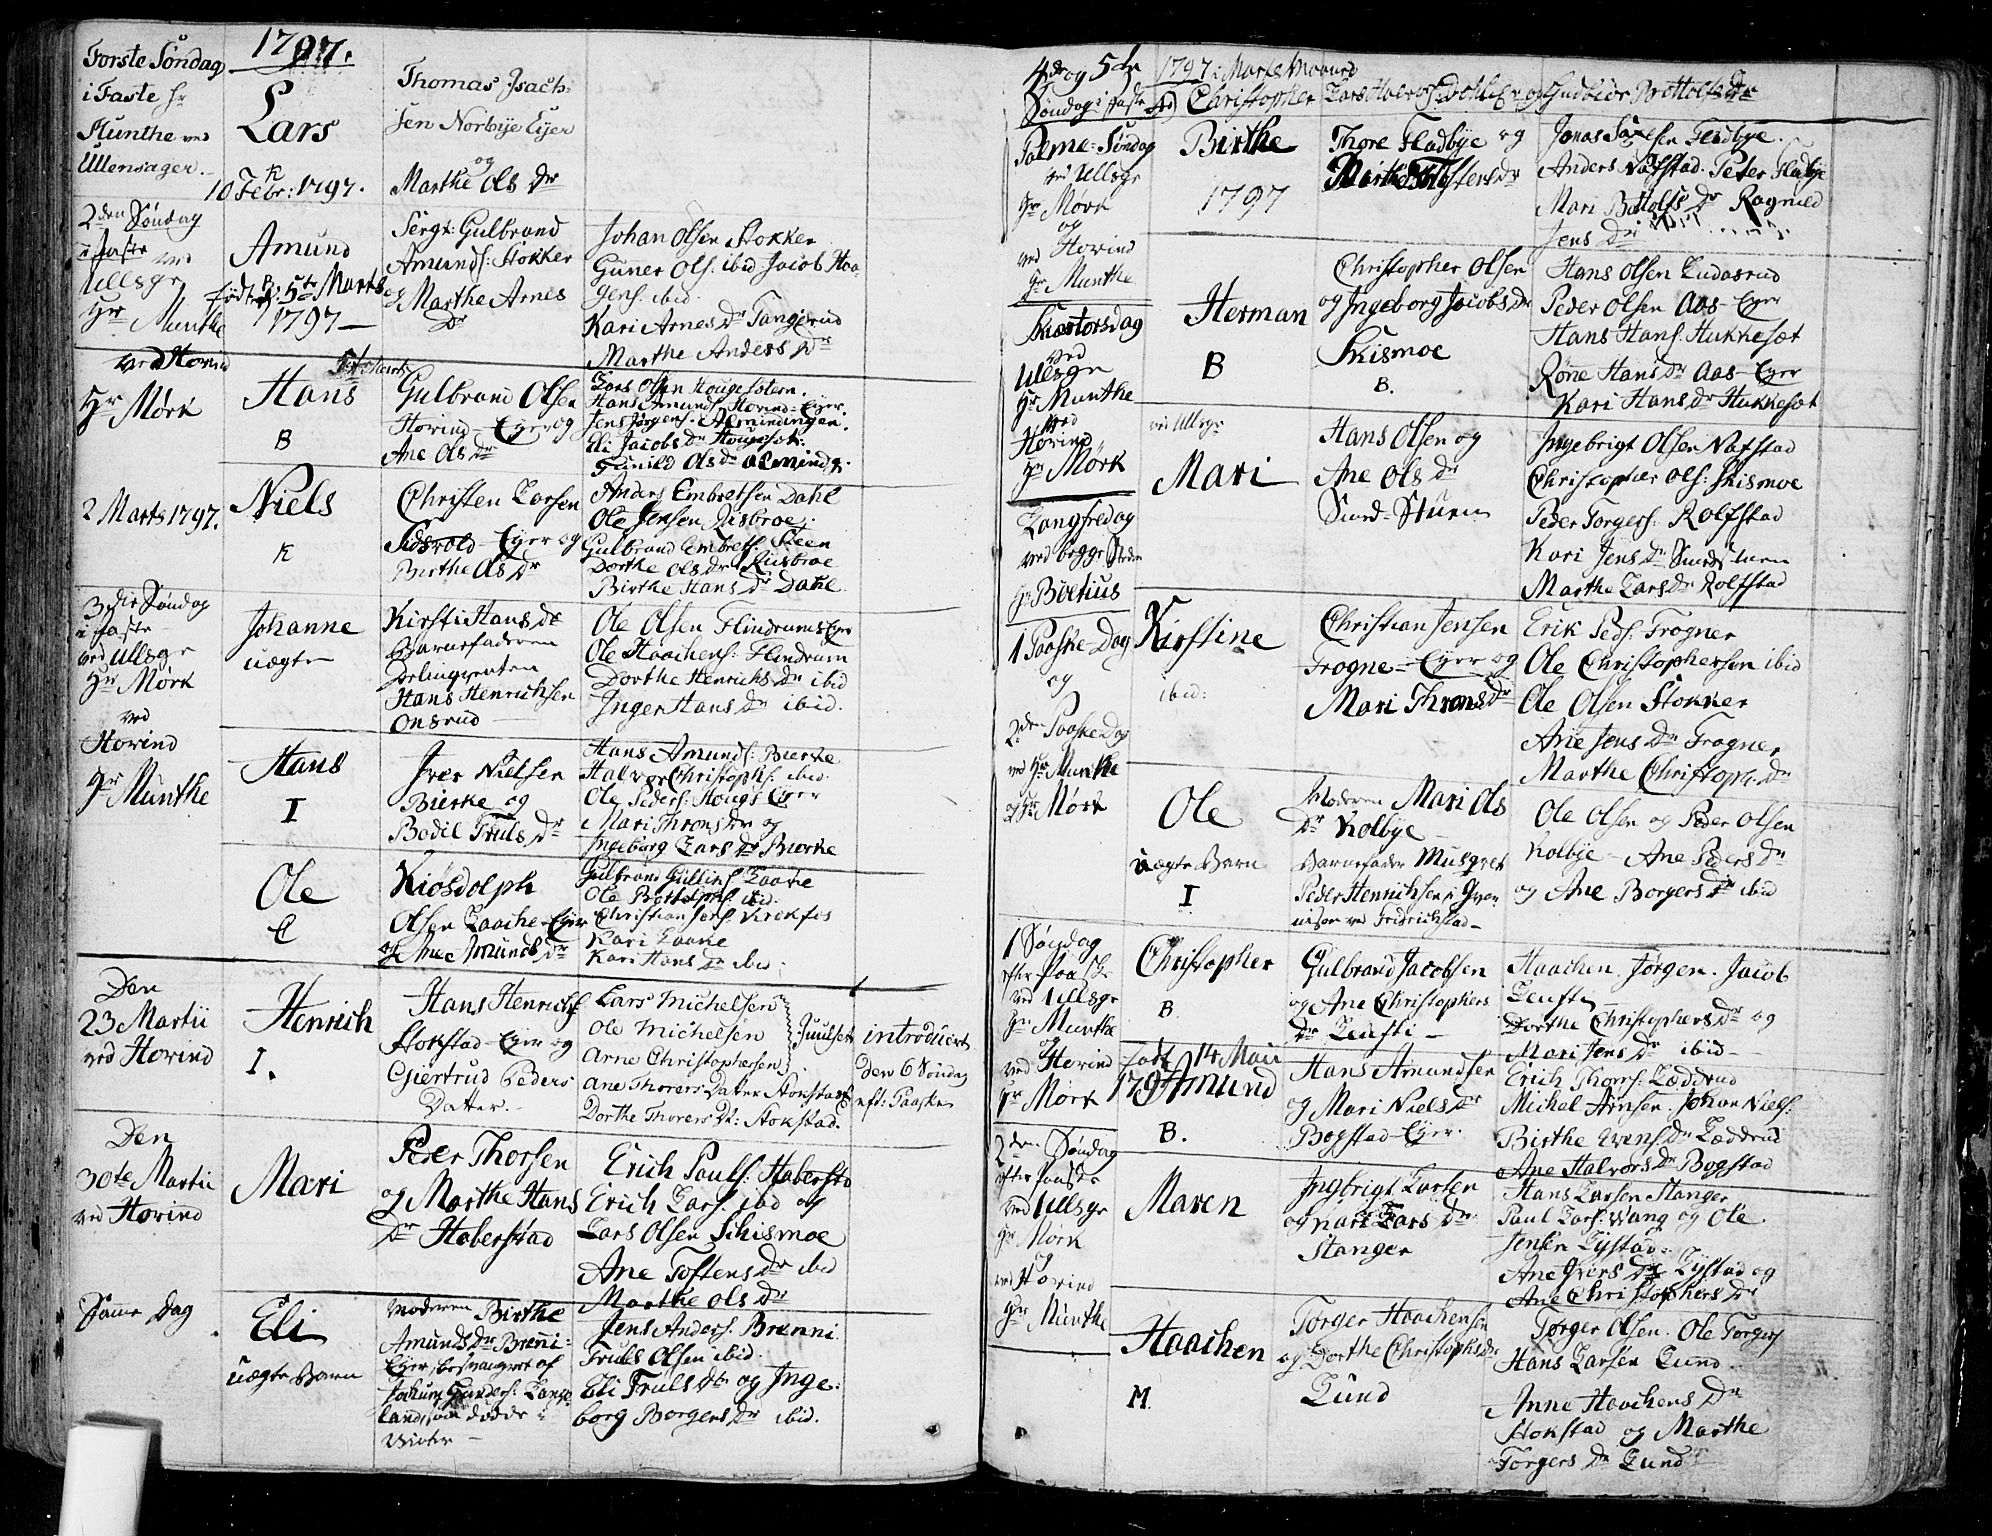 1797.
Første Søndag
i Faste hr
Munthe ved
Ullensager.
Lars
10 Febr: 1797.
Thomas Isach:
sen Norbye Eyer
og
Marthe Ols Dr
2den Søndag
i Faste ved
Ullsgr
Hr Munthe
Amund
født 5te Marts
1797
Sergt: Gulbrand
Amunds: Stokker
og Marthe Arnes
Dr
Johan Olsen Stokker
Gunner Ols: ibid Jacob Haa-
gens: ibid
Kari Arnes Dr Tangerud
Marthe Anders Dr
ved Hovind
Hr Mørk
Hans
B
Gulbrand Olsen
Hovind Eyer og
Ane Ols Dr
Lars Olsen Hougesetern.
Hans Amunds: Hovind Eyer.
Jens Jørgens: Almindingen.
Eli Jacobs Dr Hougeset:
Gunild Ols Dr Alminds:
2 Marts 1797.
Niels
K
Christen Larsen
Eyer og
Birthe Ols Dr
Anders Embretsen Dahl
Ole Jensen Riisbroe:
Gulbrand Embrets: Steen
Dorthe Ols Dr Riisbroe
Birthe Hans Dr Dahl.
3die Søndag
i Faste
ved Ullsgr
Hr Mørk
ved
Hovind
Hr Munthe
Johanne
uægte
Kirsti Hans Dr
Barnefaderen
Delinqventen
Hans Henrichsen
Onsrud
Ole Olsen Flindrum Eyer
Ole Haachens: Flindrum
Dorthe Henrichs Dr ibid
Inger Hans Dr ibid.
Hans
I
Iver Nielsen
Bierke og
Bodil Truls Dr
Hans Amunds: Bierke
Halvor Christophs: ibid.
Ole Peders: Hougs Eyer
Mari Throns Dr og
Ingeborg Lars Dr Bierke
Ole
Kiøsdolph
Olsen Laache Eyer
og Ane Amunds Dr
Gulbrand Gullins: Laake
Ole Bottolphs: ibid.
Christian Jens: Kirkefos
Kari Laake
Kari Hans Dr ibid:
Den
23 Martii
ved Hovind
Henrich
I.
Hans Henrichs
Stokstad Eyer og
Giertrud Peders
Datter.
Lars Michelsen
Ole Michelsen
Arne Christophersen
Juulset
Ane Thorers Datter Stokstad
Dorthe Thorers Dr: Stokstad.
introducert
den 6 Søndag
eft: Paaske
Den
30te Martii
ved Hovind
Mari
Peder Thorsen
og Marthe Hans
Dr Haberstad
Erich Pauls: Haberstd
Erich Lars: ibd og
Lars Olsen Schismoe
Ane Tostens Dr ibid
Marthe Ols Dr
Same Dag
Eli
uægte Barn
Moderen Birthe
Amunds Dr Brenni:
Eyer, besvangret af
Jokum Gunders: Lange
land, som døde i
Vinter
Jens Anders: Brenni
Truls Olsen ibid.
Eli Truls Dr og Inge:
borg Borgers Dr ibid.
4de og 5te
Søndag i Faste
1797 i Marts Maaned
Christopher
Lars Halvors: og Gudbiør Bottolfs Dr
Palme-Søndag
ved Ullsgr
Hr Mørk
og
ved Hovind
Hr Munthe
Birthe
1797
Thore Fladbye og
Marthe Tostens Dr
Fladbye.
Anders Nafstad. Peter Fladbye
Mari Bottolfs Dr Ragnild
Jens Dr
Skiærtorsdag
ved
Ullsgr
Hr Munthe
ved
Hovind
Hr Mørk
Herman
B
Christopher Olsen
og Ingeborg Jacobs Dr
Skismoe
B.
Hans Olsen Ludasrud
Peder Olsen Aas Eyer
Hans Hans: Hukkeset
Røne Hans Dr Aas Eyer
Kari Hans Dr Hukkeset
ved Ullsgr
Mari
Hans Olsen og
Ane Ols Dr
Smed-Stuen
Ingebrigt Olsen Nafstad
Christopher Ols: Skismoe
Peder Torgers: Rolfstad
Kari Jens Dr Smedstuen
Marthe Lars Dr Rolfstad
Langfredag
ved begge Steder
Hr Boetius
1 Paaske-Dag
og
2den Paaske Dag
ved Hr Munthe
og Hr Mørk
Kirstine
ibid:
Christian Jensen
Frogne Eyer og
Mari Throns Dr
Erik Peds: Frogner
Ole Christophersen ibid
Ole Olsen Stokker
Ane Jens Dr Frogner
Marthe Christoph: Dr
Ole
uægte Barn
I
Moderen Mari Ols
Dr Kolbye
Barnefader Musqvet
Peder Henrichsen i Gvar
nison ved Fridrichstad
Ole Olsen og Peder Olsen
Kolbye Ane Peders Dr
og Ane Borgers Dr ibid
1 Søndag
efter Paaske
ved Ullsgr
Hr Munthe
og
ved Hovind
Hr Mørk
Christopher
B.
Gulbrand Jacobsen
og Ane Christophers
Dr Leufti
Haachen. Jørgen. Jacob
Leufti
Dorthe Christophers Dr og
Mari Jens Dr ibid
født 14 Maii
1797
Amund
B.
Hans Amundsen
og Mari Niels Dr
Bogstad Eyer.
Erich Thorrs: Læddrud
Michel Arnsen. Johan Niels:
Birthe Evens Dr Læddrud
Ane Halvors Dr Bogstad
2den Søndag
efter Paaske
ved Ullsgr
Hr Mørk
og
ved Hovind
Hr Munthe
Maren
Ingbrigt Larsen
og Kari Lars Dr
Stanger
Hans Larsen Stanger
Paul Lars: Wang og Ole
Jensen Lystad
Ane Ivers Dr Lystad og
Ane Christophers Dr
Haachen
M
Torger Haachensen
og Dorthe Christophs Dr
Lund
Torger Olsen. Ole Torgers
Hans Larsen Lund
Anne Haachens Dr
Stokstad og Marthe
Torgers Dr Lund